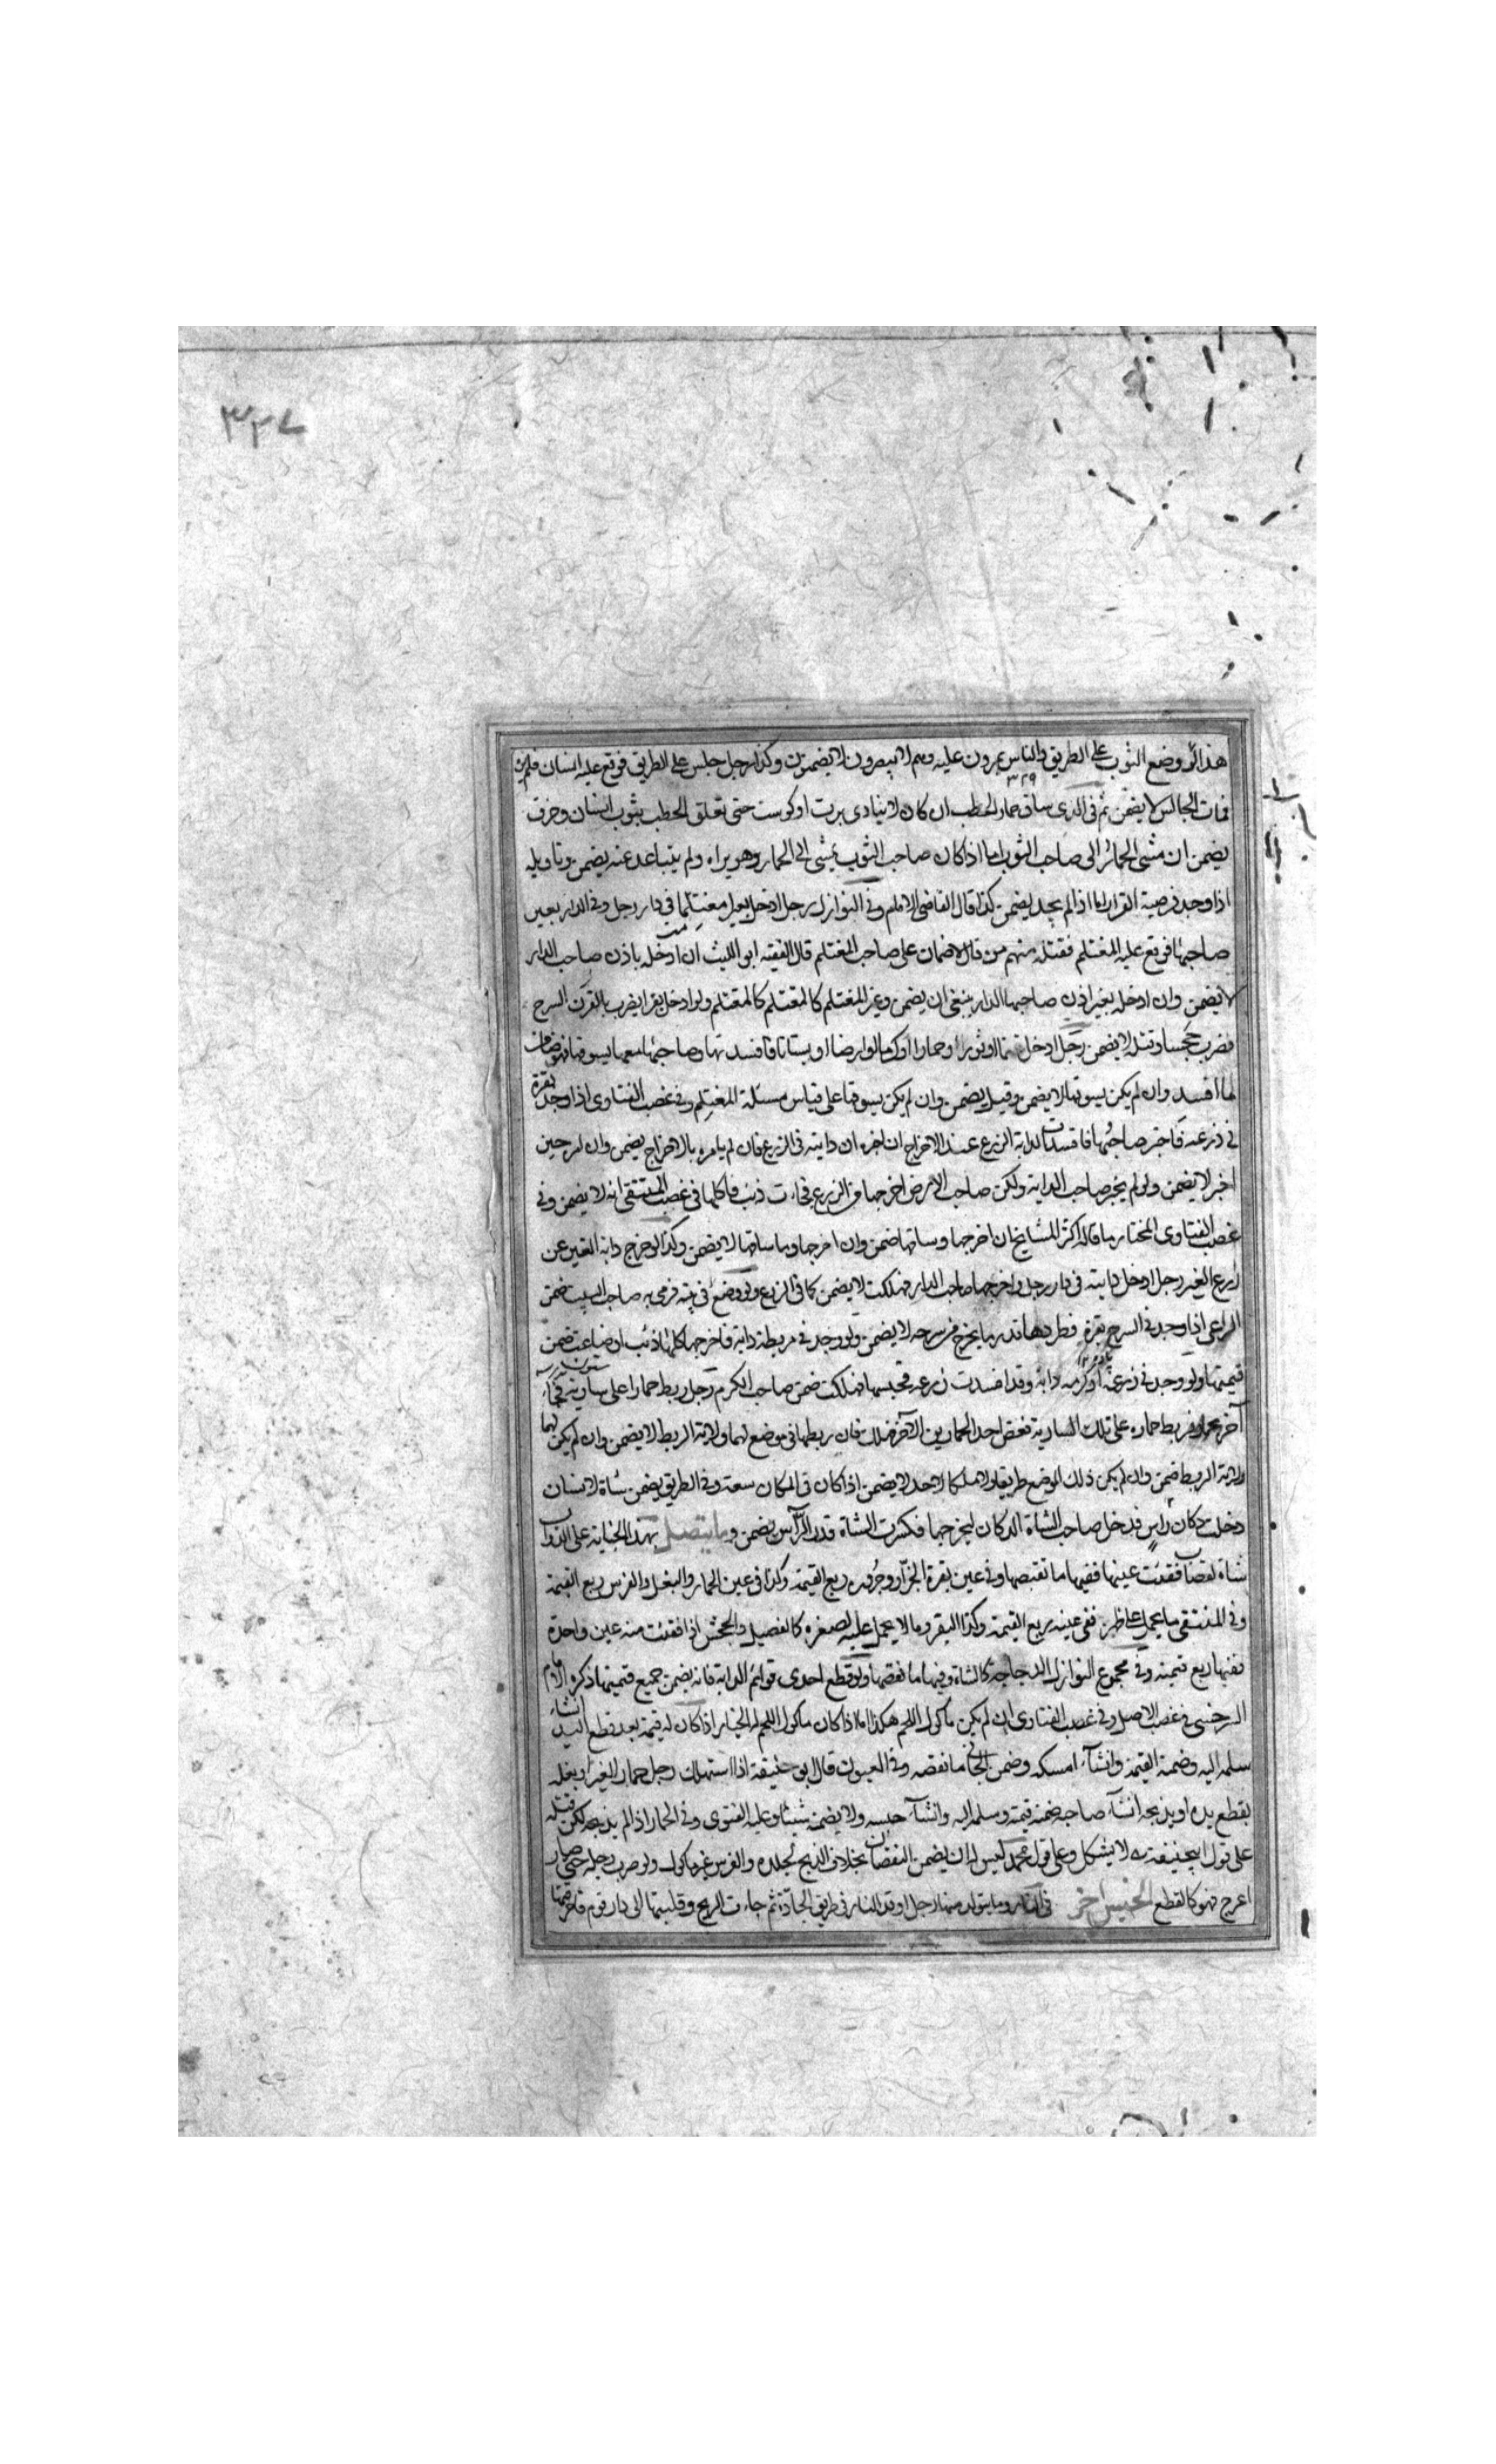 ٣٢٧
هذا لو وضع الثوب على الطريق والناس يمرون عليه وهم لا يبصرون لا يضمنون وكذا رجل جلس على الطريق فوقع عليه انسان فلم
فمات الجالس لا يضمن ثم في الذي ساق حمار الحطب ان كان لا ينادي برت او كوست حتى تعلق الحطب بثوب انسان وخرق
يضمن ان مشى الحمار الى صاحب الثوب اما اذا كان صاحب الثوب يمشي الى الحمار وهو يراه ولم يتباعد عنه يضمن وتاويله
اذا وجد فرصة الفرار اما اذا لم يجد يضمن كذا قال القاضي الامام وفي النوازل رجل ادخل بعيرا مغتلما في دار رجل وفي الدار بعير
صاحبها فوقع عليه المغتلم فقتله منهم من قال لا ضمان على صاحب المغتلم قال الفقيه ابو الليث ان ادخله باذن صاحب الدار
لا يضمن وان ادخله بغير اذن صاحبها الدار ينبغي ان يضمن وغير المغتلم كالمغتلم ولو ادخل بقرا يضرب بالقرن السرح
فضرب جحشا وقتله لا يضمن رجل ادخل غنما او ثورا او حمارا او كرما او ارضا او بستانا فافسدتها وصاحبها معها يسوقها فهو ضامن
لما افسد وان لم يكن يسوقها لا يضمن وقيل يضمن وان لم يكن يسوقها على قياس مسئلة المغتلم وفي غصب الفتاوى اذا وجد بقرة
في زرعه فاخبر صاحبها فافسدت الدابة الزرع عند الاخراج ان اخبره ان دابته في الزرع فان لم يامره بالاخراج يضمن وان امر حين
اخبر لا يضمن ولو لم يخبر صاحب الدابة ولكن صاحب الارض اخرجها من الزرع فجاءت ذئب فاكلها في غصب المنتقى انه لا يضمن وفي
غصب الفتاوى المختار ما قاله اكثر المشايخ ان اخرجها وساقها ضمن وان اخرجها وما ساقها لا يضمن وكذا لو اخرج دابة الغير عن
زرع الغير رجل ادخل دابته في دار رجل واخرجها صاحب الدار فهلكت لا يضمن كما في الزرع ولو وضع في بيته فرمى به صاحب البيت ضمن
الراعي اذا وجد في السرح بقرة فطردها قدر ما يخرج من سرحه لا يضمن ولو وجد في مربطه دابة فاخرجها فاكلها ذئب او ضاعت ضمن
قيمتها ولو وجد في زرعه او كرمه دابة وقد افسدت زرعه فحبسها فهلكت ضمن صاحب الكرم رجل ربط حمارا على سارية فجاء
آخر بحمار فربط حماره على تلك السارية فعض احد الحمارين الآخر فهلك فان ربطهما في موضع لهما ولاية الربط لا يضمن وان لم يكن لهما
ولاية الربط ضمن وان لم يكن ذلك الموضع طريقا ولا ملكا لاحد لا يضمن اذا كان في المكان سعة وفي الطريق يضمن شاة لانسان
دخلت دكان رآس فدخل صاحب الشاة الدكان ليخرجها فكسرت الشاة قدر الرآس يضمن وما يتصل بهذا الجناية على الدواب
شاة لقصاب فقئت عينها ففيها ما نقصها وفي عين بقرة الجزار وجزوره ربع القيمة وكذا في عين الحمار والبغل والفرس ربع القيمة
وفي المنتقى ما يحمل على ظهره ففي عينه ربع القيمة وكذا البقر وما لا يحمل عليه لصغره كالفصيل والجحش اذا فقئت منه عين واحدة
ففيها ربع قيمته وفي مجموع النوازل الدجاجة كالشاة وفيها ما نقصها ولو قطع احدى قوائم الدابة فانه يضمن جميع قيمتها ذكره الامام
السرخسي في غصب الاصل وفي غصب الفتاوى ان لم يكن ماكول اللحم هكذا اما اذا كان ماكول اللحم له الخيار اذا كان له قيمة بعد قطع اليد ان شاء
سلمه اليه وضمنه القيمة وان شاء امسكه وضمن الجاني ما نقصه وفي العيون قال ابو حنيفة اذا استهلك رجل حمار الغير او بغله
بقطع يده او بذبحه ان شاء صاحبه ضمنه قيمته وسلمه اليه وان شاء حبسه ولا يضمنه شيئا وعليه الفتوى وفي الحمار اذا لم يذبحه لكن قتله
على قول ابي حنيفة لا يشكل وعلى قول محمد ليس له ان يضمن النقصان بخلاف الذبح لجلده والفرس غير ماكول ولو ضرب رجله حتى صار
اعرج فهو كالقطع الجنس اخر في النار وما يتولد منها رجل اوقد النار في طريق الجادة ثم جاءت الريح وقلبتها الى دار قوم فاحرقتها